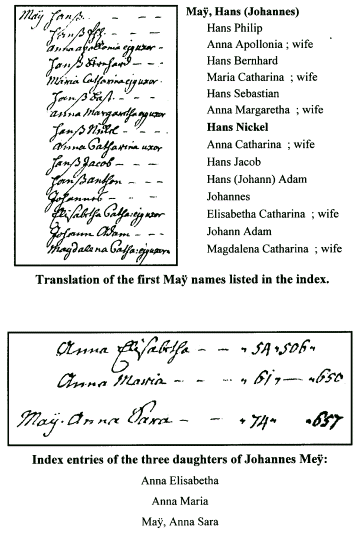 Maÿ Hanß - - - -
Hanß Ph. - - -
anna apollonia ejguxor -
Hanß Bernhard - - -
Maria Catharina ejguxor.
Hanß Bast. - - -
anna Margaretha ejguxor
Hanß Nickel - - -
anna Catharina uxor
Hanß Jacob - - -
Hanß - - -
Johannes - - -
Elisabetha Catha: ejguxor
Johann Adam - - -
Magdalena Catha: ejguxor
Maÿ, Hans (Johannes)
Hans Philip
Anna Apollonia ; wife
Hans Bernhard
Maria Catharina ; wife
Hans Sebastian
Anna Margaretha ; wife
Hans Nickel
Anna Catharina ; wife
Hans Jacob
Hans (Johann) Adam
Johannes
Elisabetha Catharina ; wife
Johann Adam
Magdalena Catharina ; wife
Translation of the first Maÿ names listed in the index.
Anna Elisabetha - - " 54 " 506 "
Anna Maria - - - " 61 " — " 650
Maÿ. Anna Sara - - " 74 " " 657
Index entries of the three daughters of Johannes Meÿ:
Anna Elisabetha
Anna Maria
Maÿ, Anna Sara